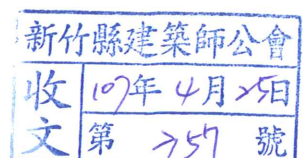 新竹縣建築師公會
收文
107年4月25日
第 757 號